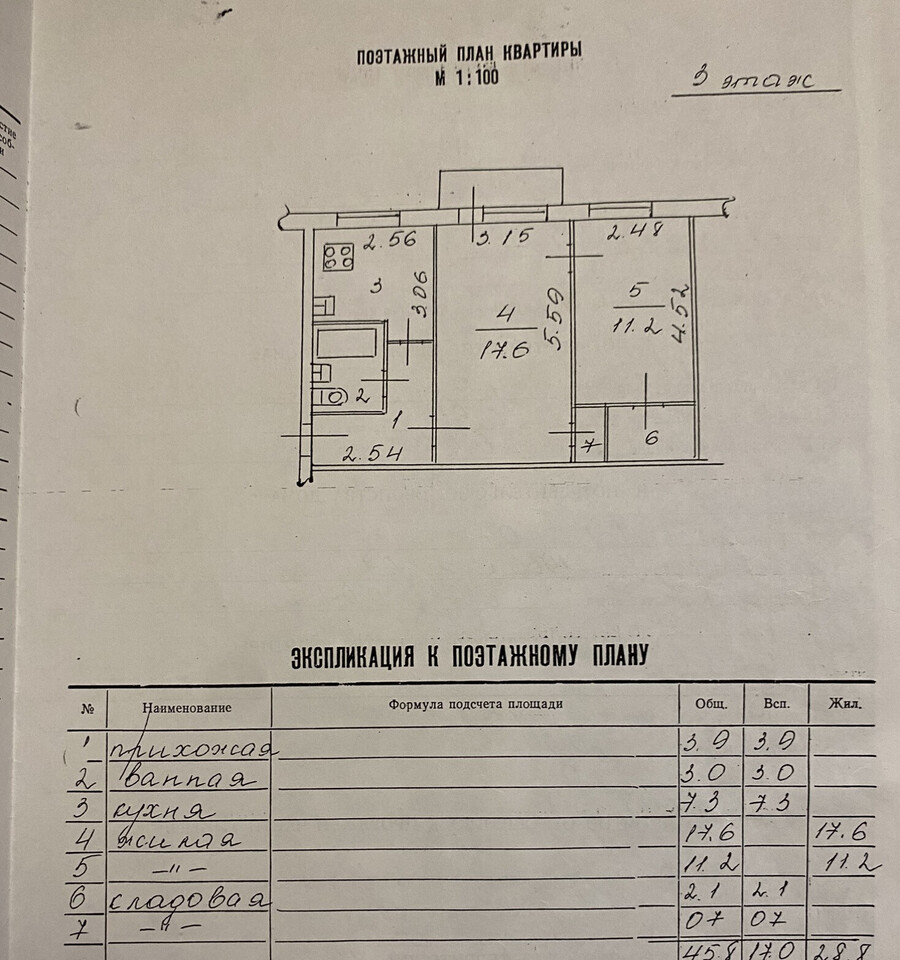 ПОЭТАЖНЫЙ ПЛАН КВАРТИРЫ
М 1:100
3 этаж
2.56 3.15 2.48
3 3.06 4 17.6 5.59 5 11.2 4.52
2
1 7 6
2.54
ЭКСПЛИКАЦИЯ К ПОЭТАЖНОМУ ПЛАНУ
№ Наименование Формула подсчета площади Общ. Всп. Жил.
1 прихожая 3.9 3.9
2 ванная 3.0 3.0
3 кухня 7.3 7.3
4 жилая 17.6 17.6
5 —"— 11.2 11.2
6 кладовая 2.1 2.1
7 —"— 07 07
45.8 17.0 28.8